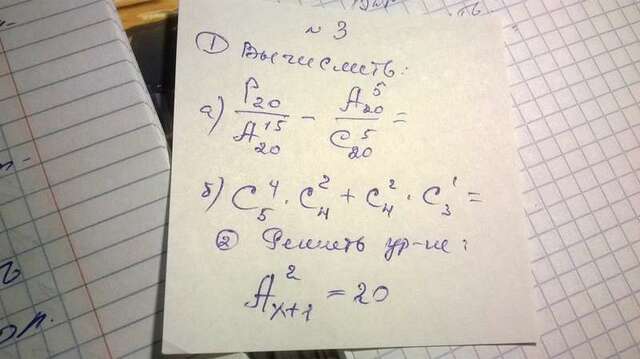 № 3
① Вычислить:
а) P₂₀/A₂₀¹⁵ − A₂₀⁵/C₂₀⁵ =
б) C₅⁴ · C₄² + C₄² · C₃¹ =
② Решить ур-ие:
A²ₓ₊₁ = 20